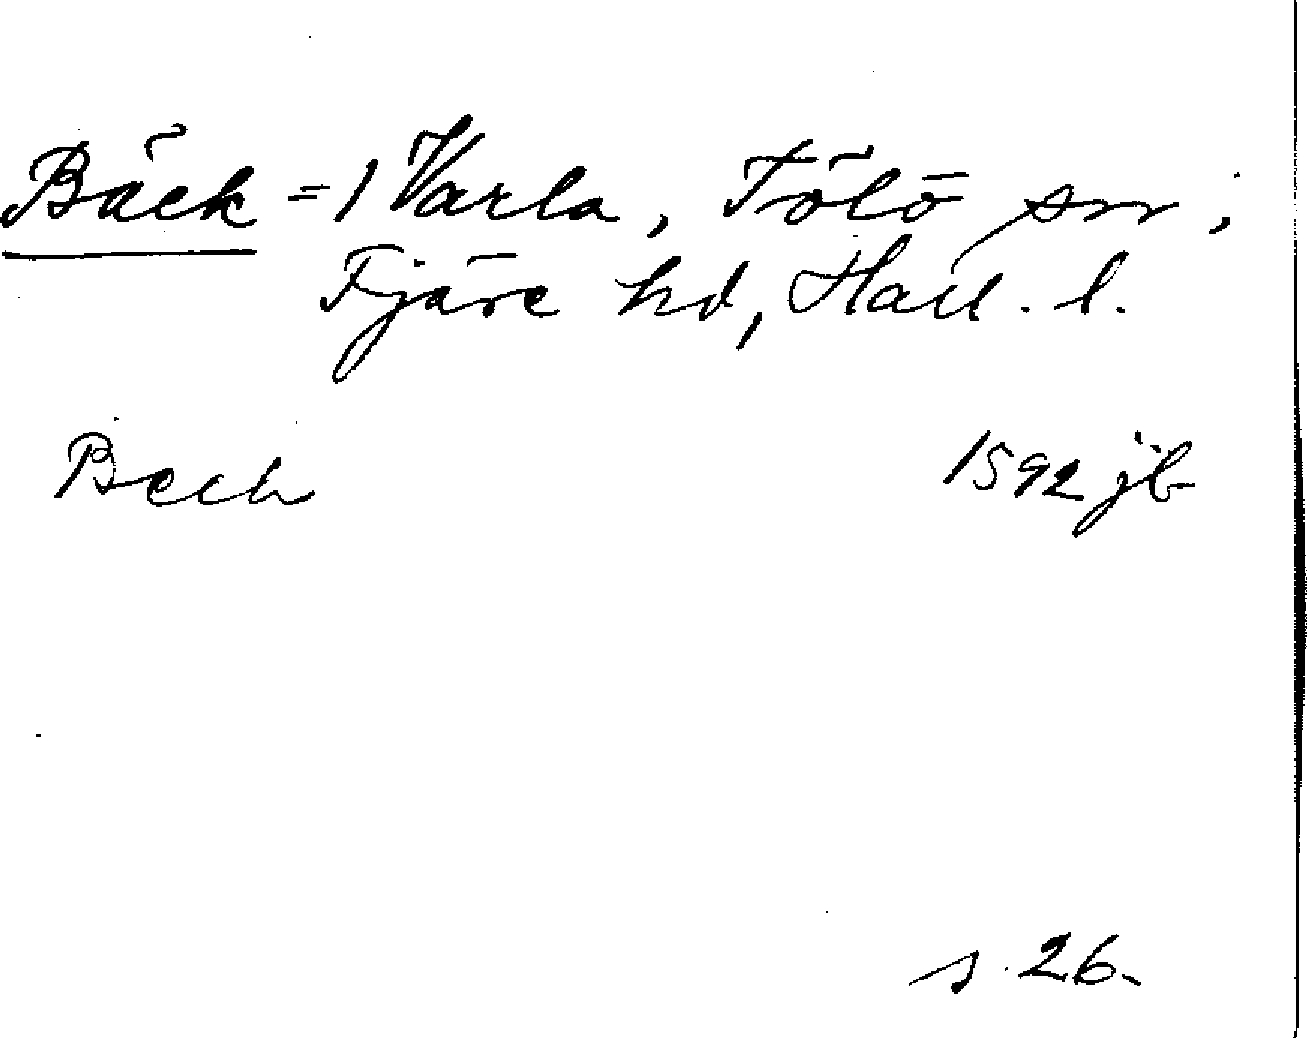 Bäck = 1 Varla, Tölö sn,
Fjäre hd, Hall. l.
Beck 1592 jb
s. 26.